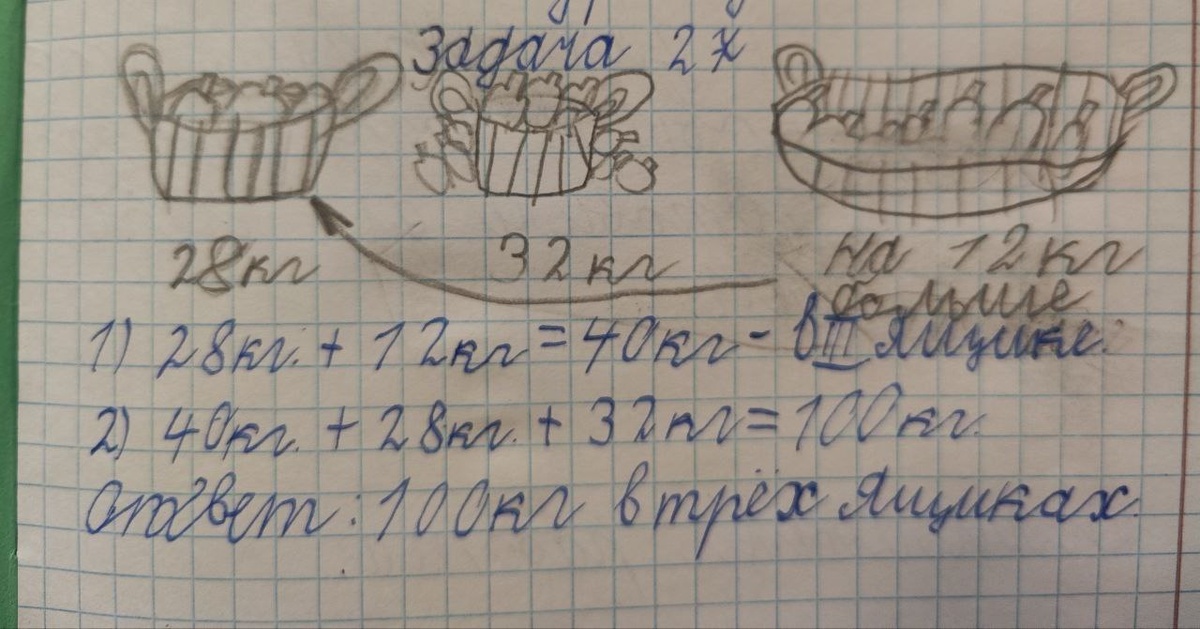 Задача 2х
28кг 32кг на 12кг
больше
1) 28кг. + 12кг = 40кг - в III ящике.
2) 40кг. + 28кг. + 32кг = 100кг.
Ответ: 100кг в трёх ящиках.